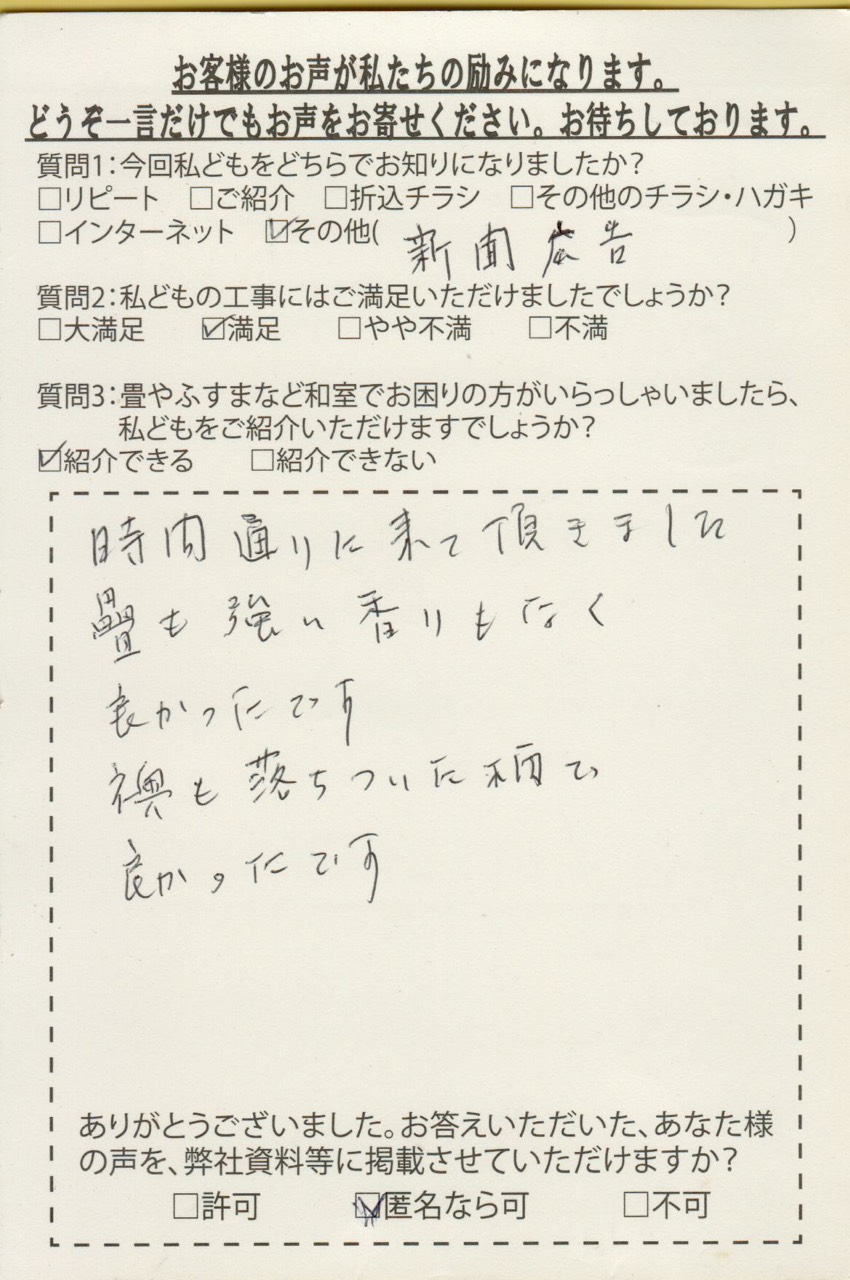 お客様のお声が私たちの励みになります。
どうぞ一言だけでもお声をお寄せください。お待ちしております。
質問1：今回私どもをどちらでお知りになりましたか？
□リピート □ご紹介 □折込チラシ □その他のチラシ・ハガキ
□インターネット ☑その他( 新聞広告 )
質問2：私どもの工事にはご満足いただけましたでしょうか？
□大満足 ☑満足 □やや不満 □不満
質問3：畳やふすまなど和室でお困りの方がいらっしゃいましたら、
私どもをご紹介いただけますでしょうか？
☑紹介できる □紹介できない
時間通りに来て頂きました
畳も強い香りもなく
良かったです
襖も落ちついた柄で
良かったです
ありがとうございました。お答えいただいた、あなた様
の声を、弊社資料等に掲載させていただけますか？
□許可 ☑匿名なら可 □不可